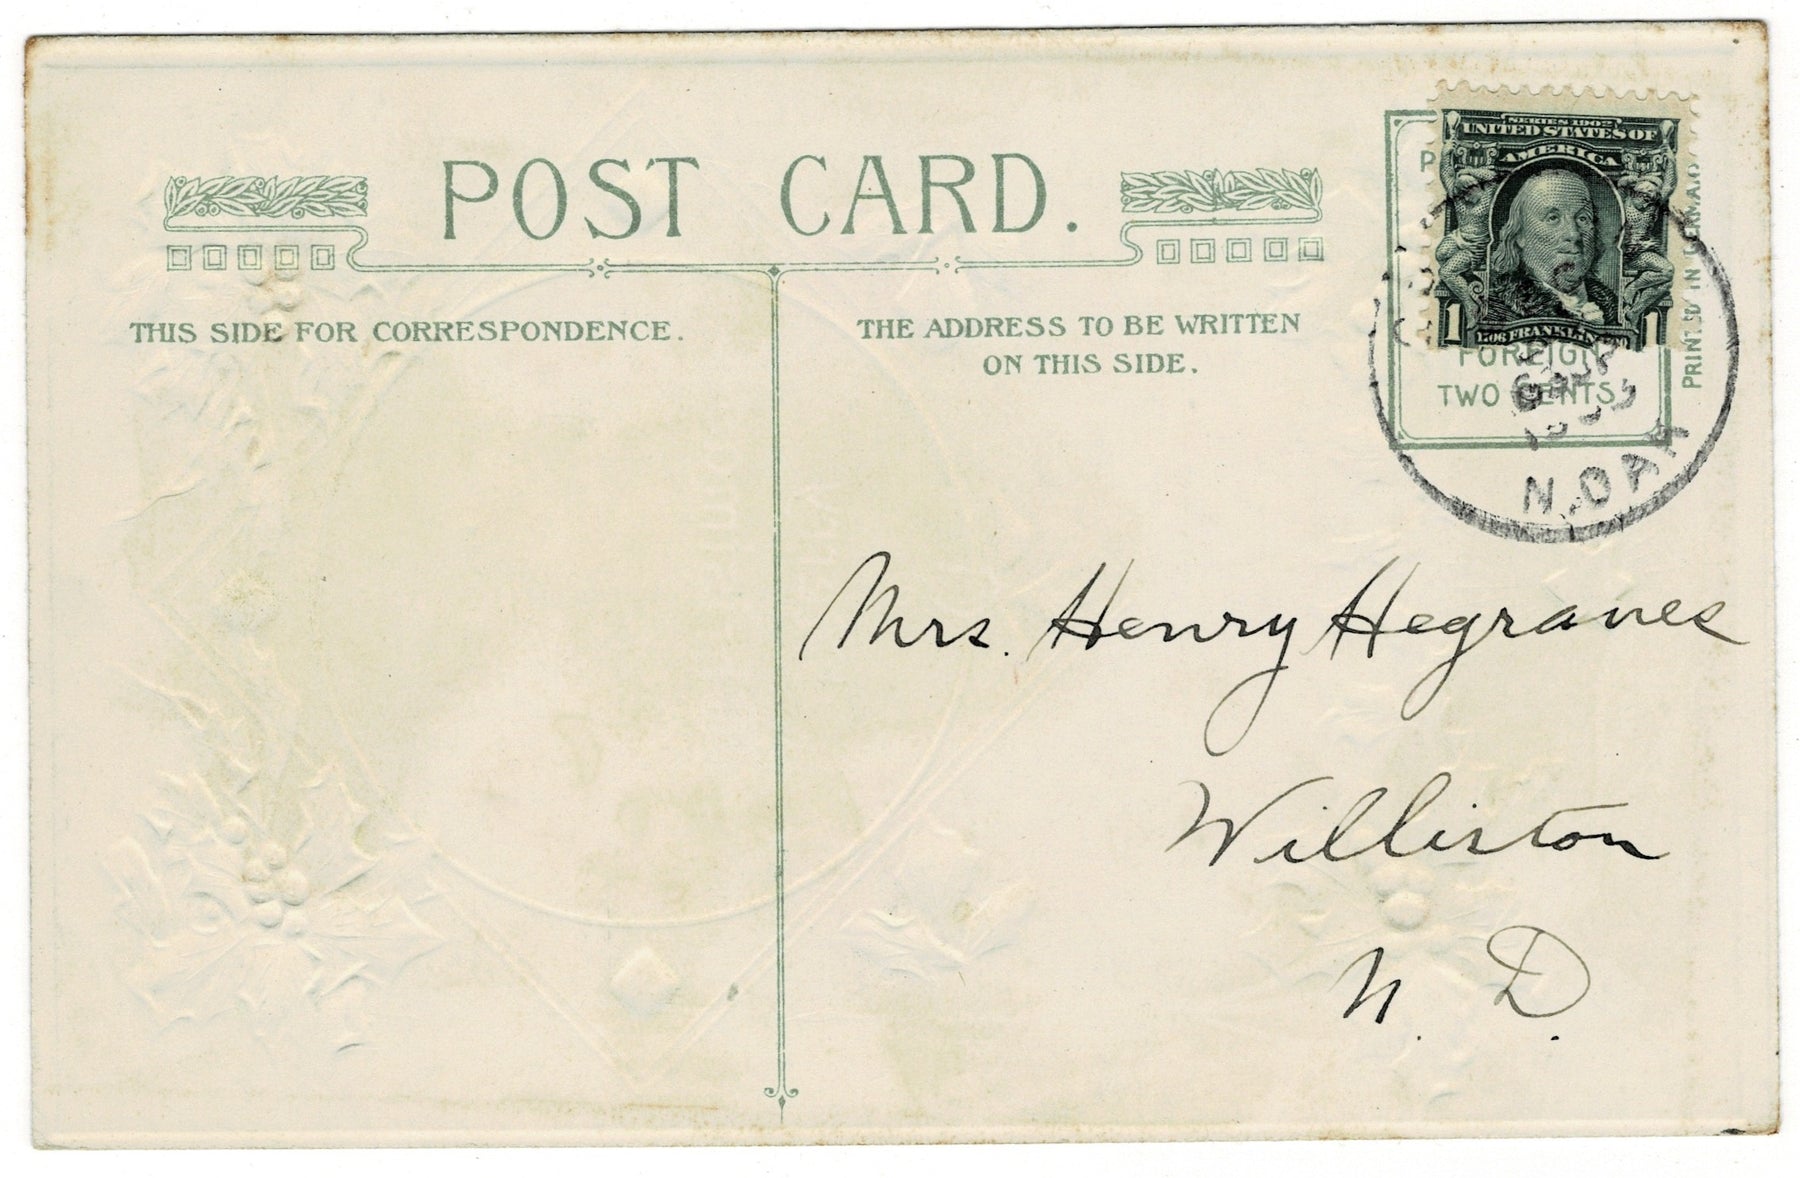 POST CARD.
THIS SIDE FOR CORRESPONDENCE.
THE ADDRESS TO BE WRITTEN
ON THIS SIDE.
SERIES 1902
UNITED STATES OF
AMERICA
FRANKLIN
1 1
FOREIGN
TWO CENTS
PRINTED IN GERMANY
N. DAK
Mrs. Henry Hegranes
Williston
N. D.